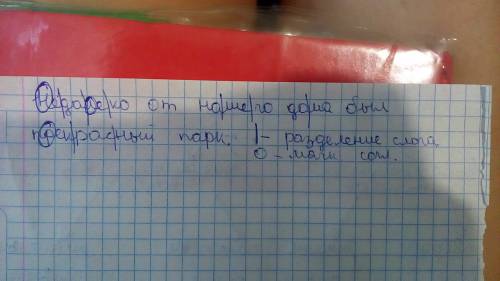 Недалеко от нашего дома был
прекрасный парк. | - разделение слога
О - мягк согл.